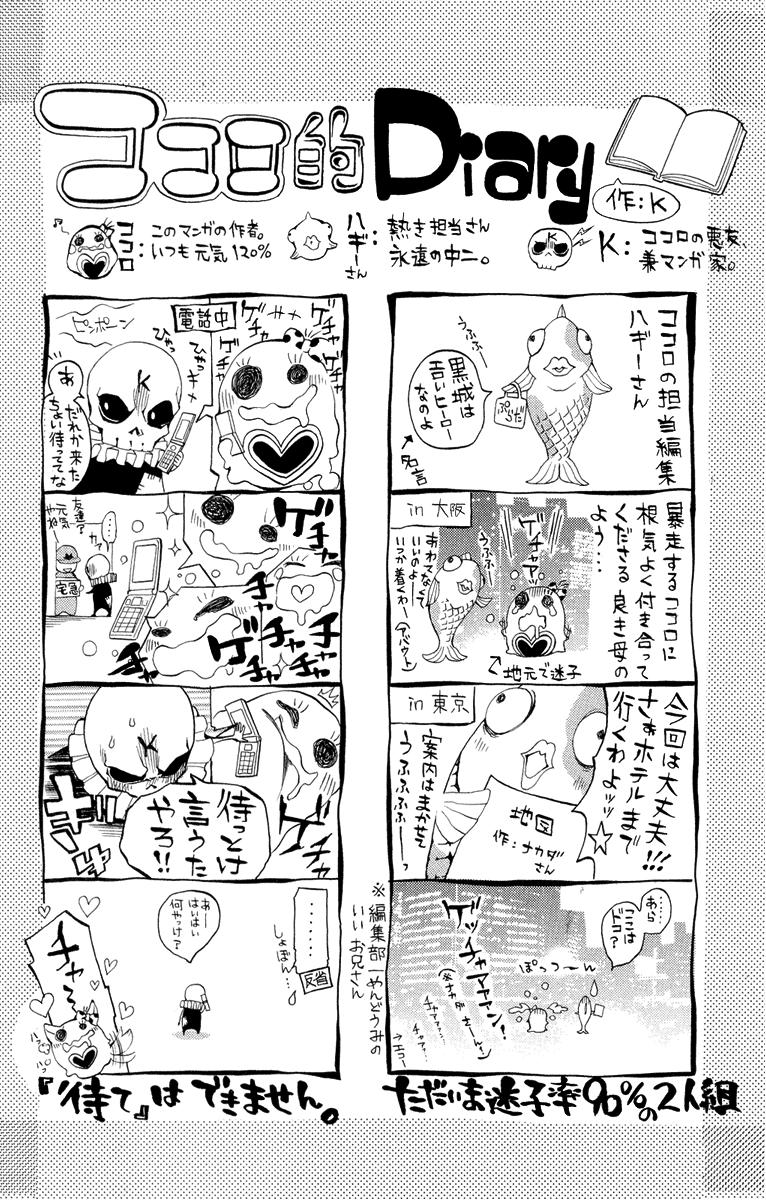 ココロ的Diary
作:K
ココロ:
このマンガの作者。
いつも元気120%
ハギーさん:
熱き担当さん
永遠の中二。
K:
ココロの悪友、
兼マンガ家。
ココロの担当編集
ハギーさん
うふふー
黒城は
苦いヒーロー
なのよ
ぷらだ
名言
暴走するココロに
根気よく付き合って
くださる良き母の
よう…
in 大阪
ゲチャアッ
うふふー
あわてなくて
いいのよー
いつか着くわー
(アバウト)
地元で迷子
今回は大丈夫!!!
さぁホテルまで
行くわよッッ☆
in 東京
地図
作:ナカダ
さん
案内はまかせて
うふふふふーーっ
あら……
ここは
ドコ?
ぽっつーーん
ゲッチャアアアン!
(※ナカダさーーん!)
チャァ…
チャァ…
→エコー
※編集部一めんどうみの
いいお兄さん
ただいま迷子率90%の2人組
ゲチャゲチャ
ゲチャゲチャ
電話中
ピンポーン
ひゃっ
ひゃっ
K
あ
だれか来た
ちょい待ってな
ゲチャ
チャ
チャ
ゲチャ
チャ
チャ
友達?
元気
やね
……
カァ…
宅急
ゲチャ
チャ
K
待っとけ
言うた
やろ!!
………
しょぼん…
反省
あー
はいはい
何やっけ?
チャ〜
ハッ
ハッ
『待て』はできません。